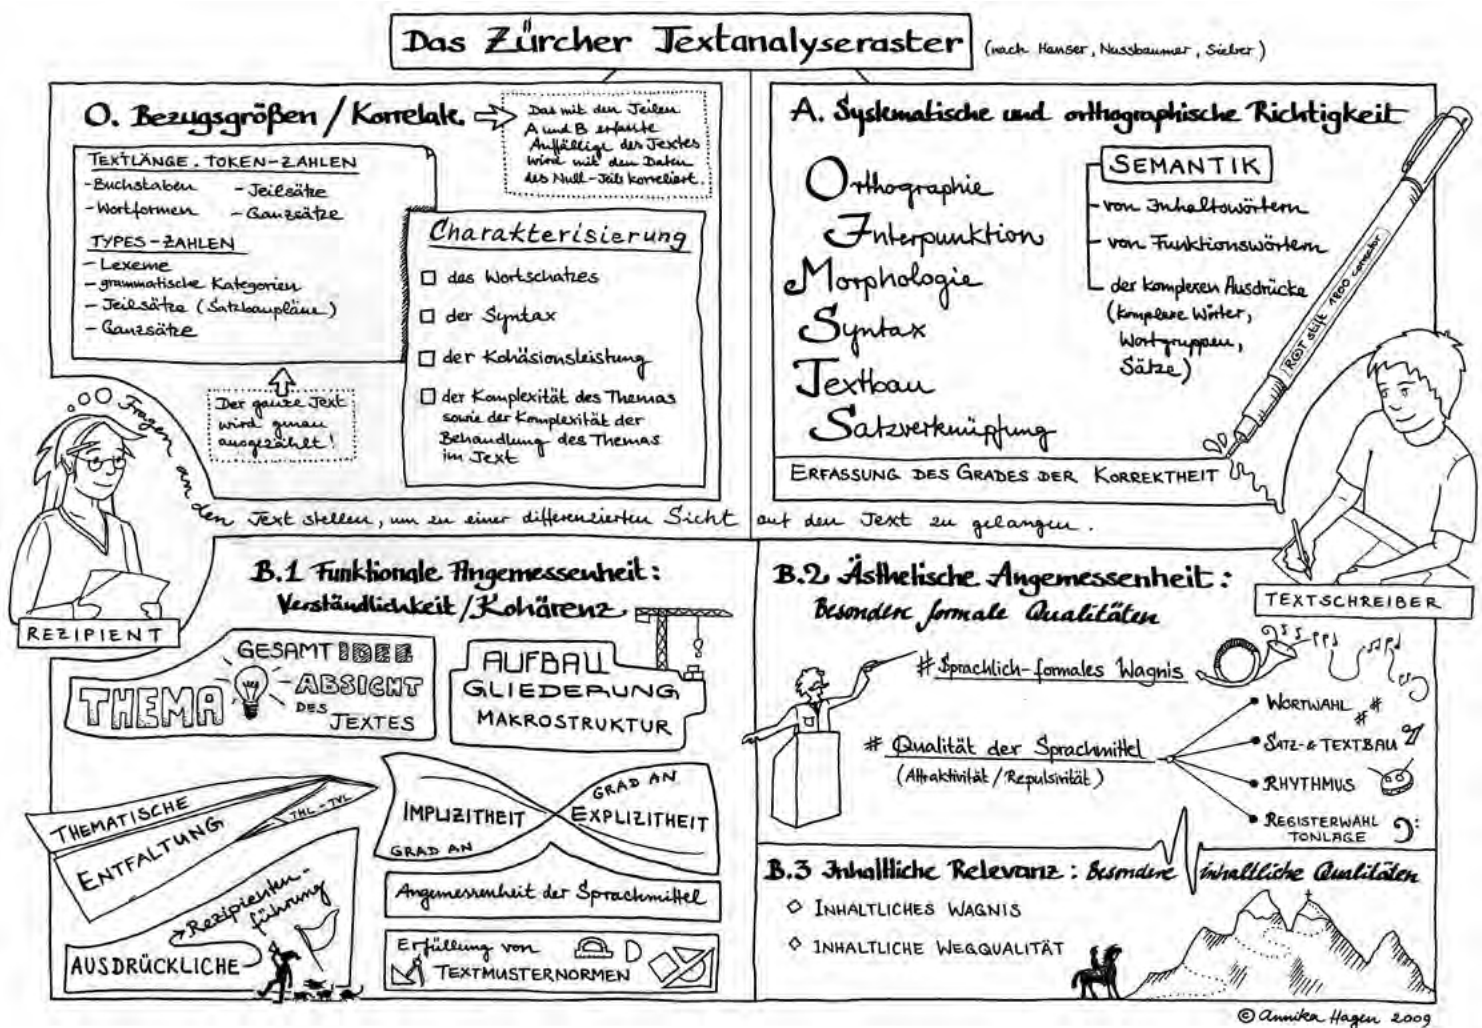 Das Zürcher Textanalyseraster
(nach Hanser, Nussbaumer, Sieber)
0. Bezugsgrößen / Korrelate.
Das mit den Teilen
A und B erfasste
Auffällige des Textes
wird mit den Daten
des Null-Teils korreliert.
TEXTLÄNGE. TOKEN-ZAHLEN
- Buchstaben
- Teilsätze
- Wortformen
- Ganzsätze
TYPES-ZAHLEN
- Lexeme
- grammatische Kategorien
- Teilsätze (Satzbaupläne)
- Ganzsätze
Der ganze Text
wird genau
ausgezählt!
Charakterisierung
des Wortschatzes
der Syntax
der Kohäsionsleistung
der Komplexität des Themas
sowie der Komplexität der
Behandlung des Themas
im Text
A. Systematische und orthographische Richtigkeit
Orthographie
Interpunktion
Morphologie
Syntax
Textbau
Satzverknüpfung
SEMANTIK
- von Inhaltswörtern
- von Funktionswörtern
der komplexen Ausdrücke
(komplexe Wörter,
Wortgruppen,
Sätze)
ROT stift 1800 corrector
ERFASSUNG DES GRADES DER KORREKTHEIT
Fragen an den Text stellen, um zu einer differenzierten Sicht auf den Text zu gelangen.
REZIPIENT
TEXTSCHREIBER
B.1 Funktionale Angemessenheit:
Verständlichkeit/Kohärenz
THEMA
GESAMTIDEE
ABSICHT
DES
TEXTES
AUFBAU
GLIEDERUNG
MAKROSTRUKTUR
THEMATISCHE
ENTFALTUNG
THL-TVL
GRAD AN
IMPLIZITHEIT
GRAD AN
EXPLIZITHEIT
Angemessenheit der Sprachmittel
Rezipienten-
führung
AUSDRÜCKLICHE
Erfüllung von
TEXTMUSTERNORMEN
B.2 Ästhetische Angemessenheit:
Besondere formale Qualitäten
# Sprachlich-formales Wagnis
# Qualität der Sprachmittel
(Attraktivität/Repulsivität)
WORTWAHL
SATZ- & TEXTBAU
RHYTHMUS
REGISTERWAHL
TONLAGE
B.3 Inhaltliche Relevanz: Besondere inhaltliche Qualitäten
INHALTLICHES WAGNIS
INHALTLICHE WEGQUALITÄT
© Annika Hagen 2009